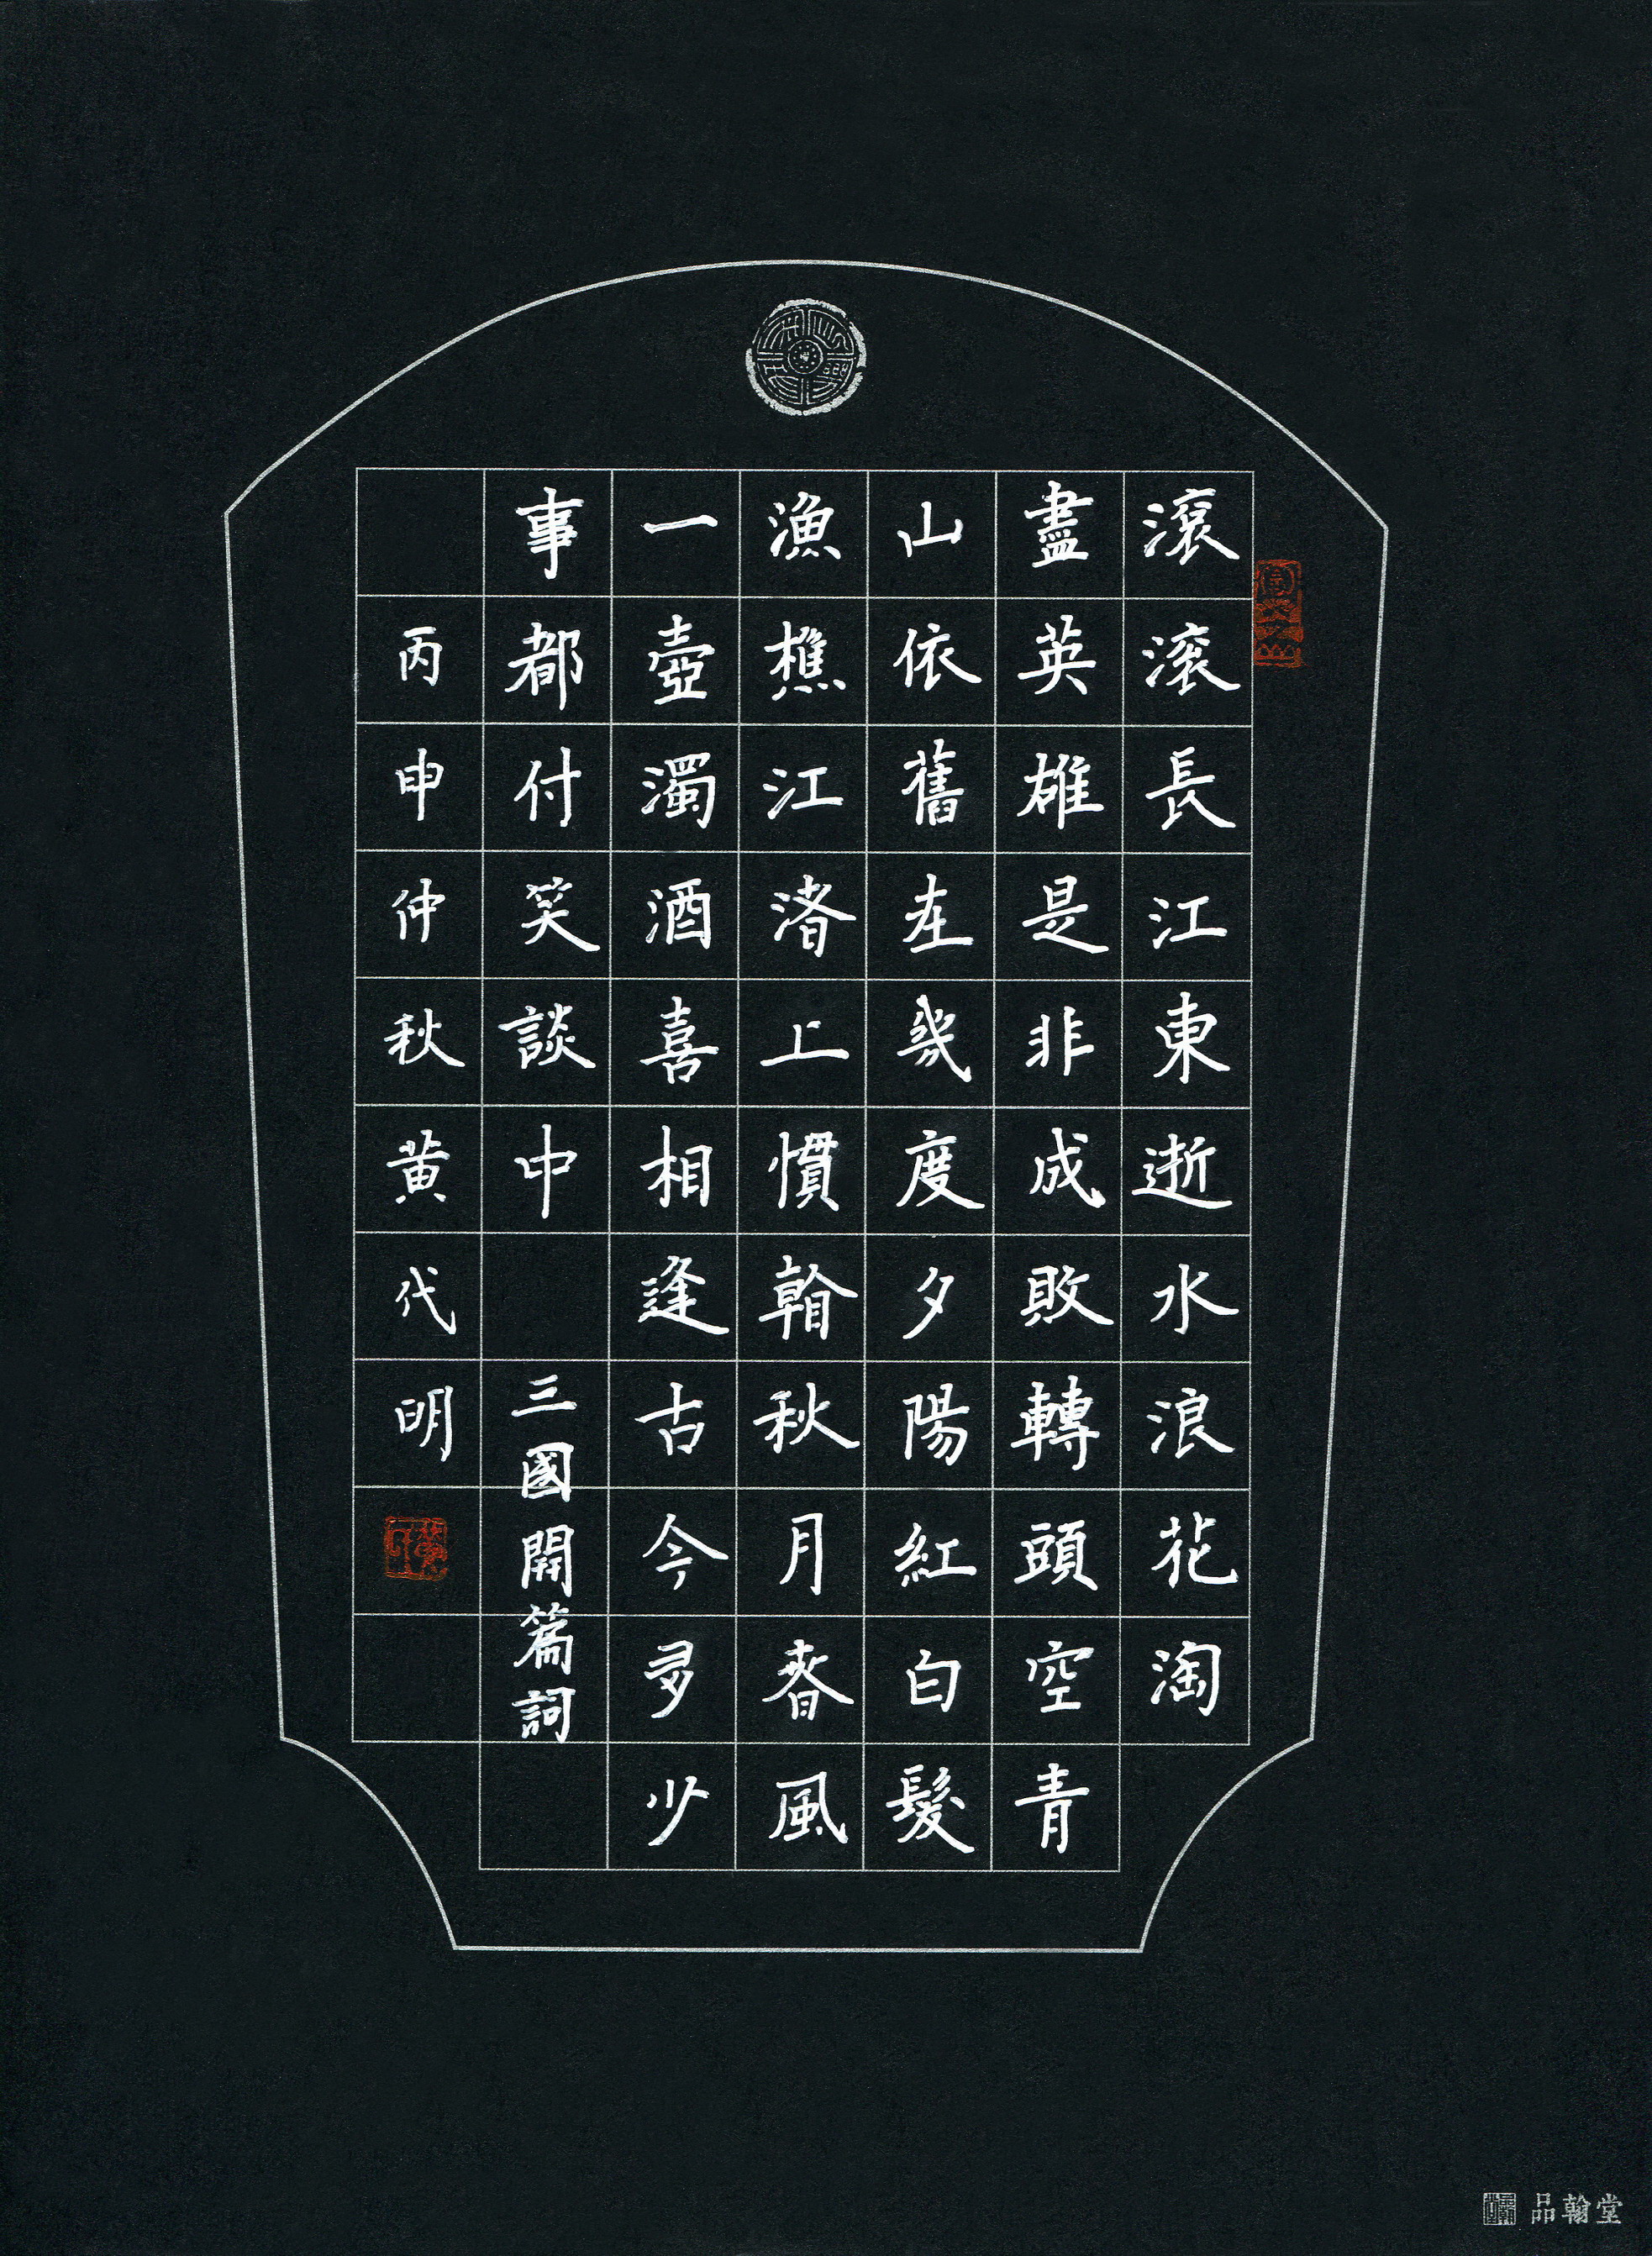 滾滾長江東逝水浪花淘
盡英雄是非成敗轉頭空青
山依舊在幾度夕陽紅白髮
漁樵江渚上慣看秋月春風
一壺濁酒喜相逢古今多少
事都付笑談中
三國開篇詞
丙申仲秋黃代明
品翰堂